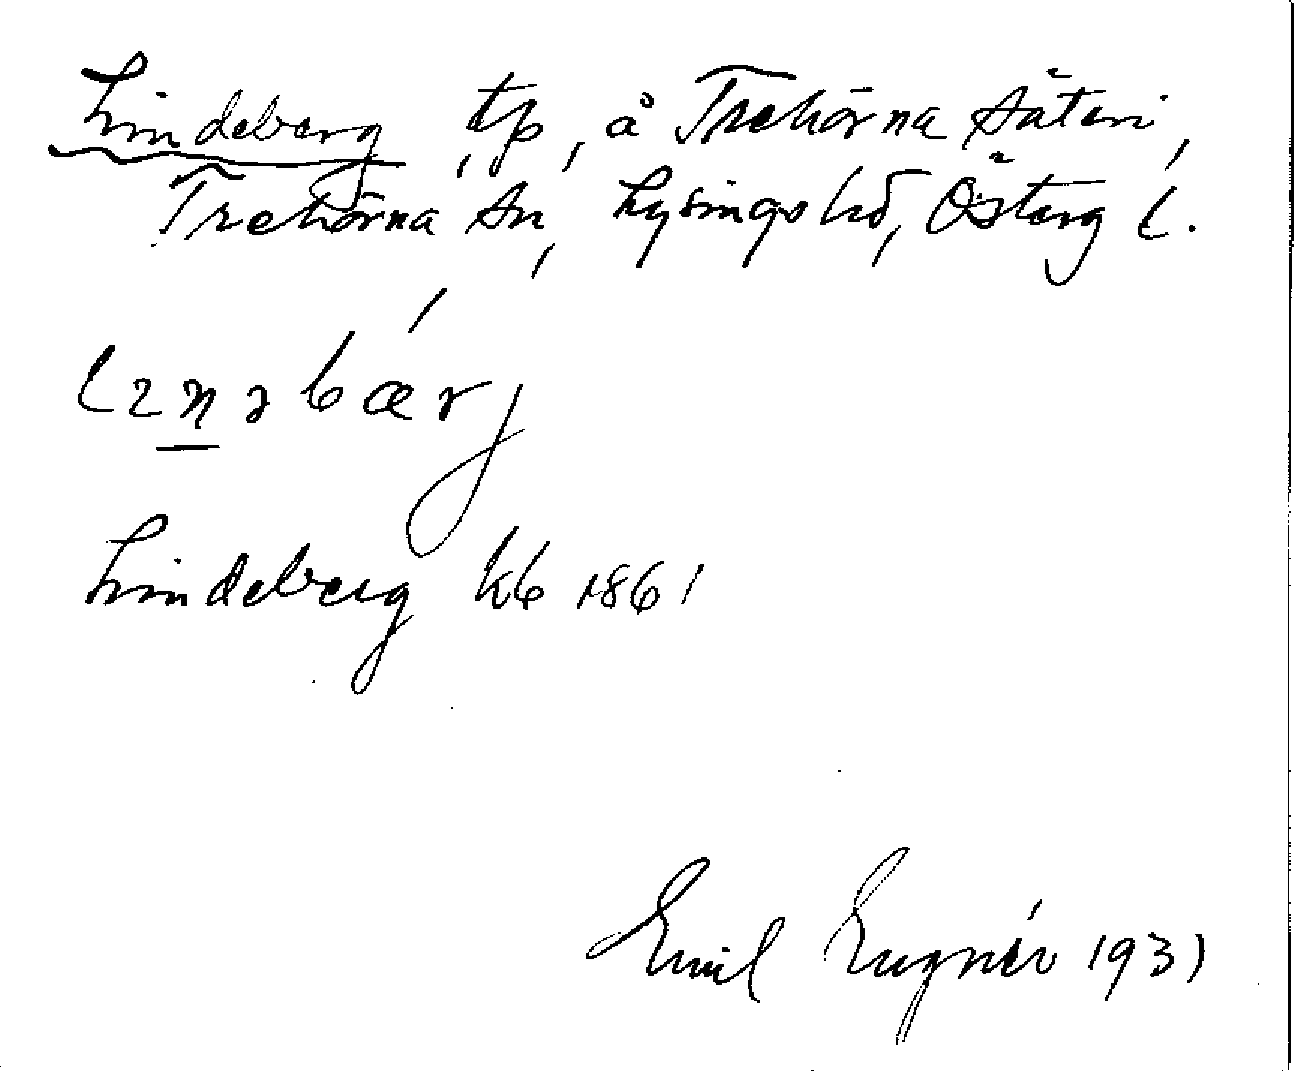 Lindeberg, tp, å Trehörna säteri,
Trehörna sn, Lysings hd, Österg l.
lɪnəbǽrj
Lindeberg kb 1861
Emil Lugnér 1931